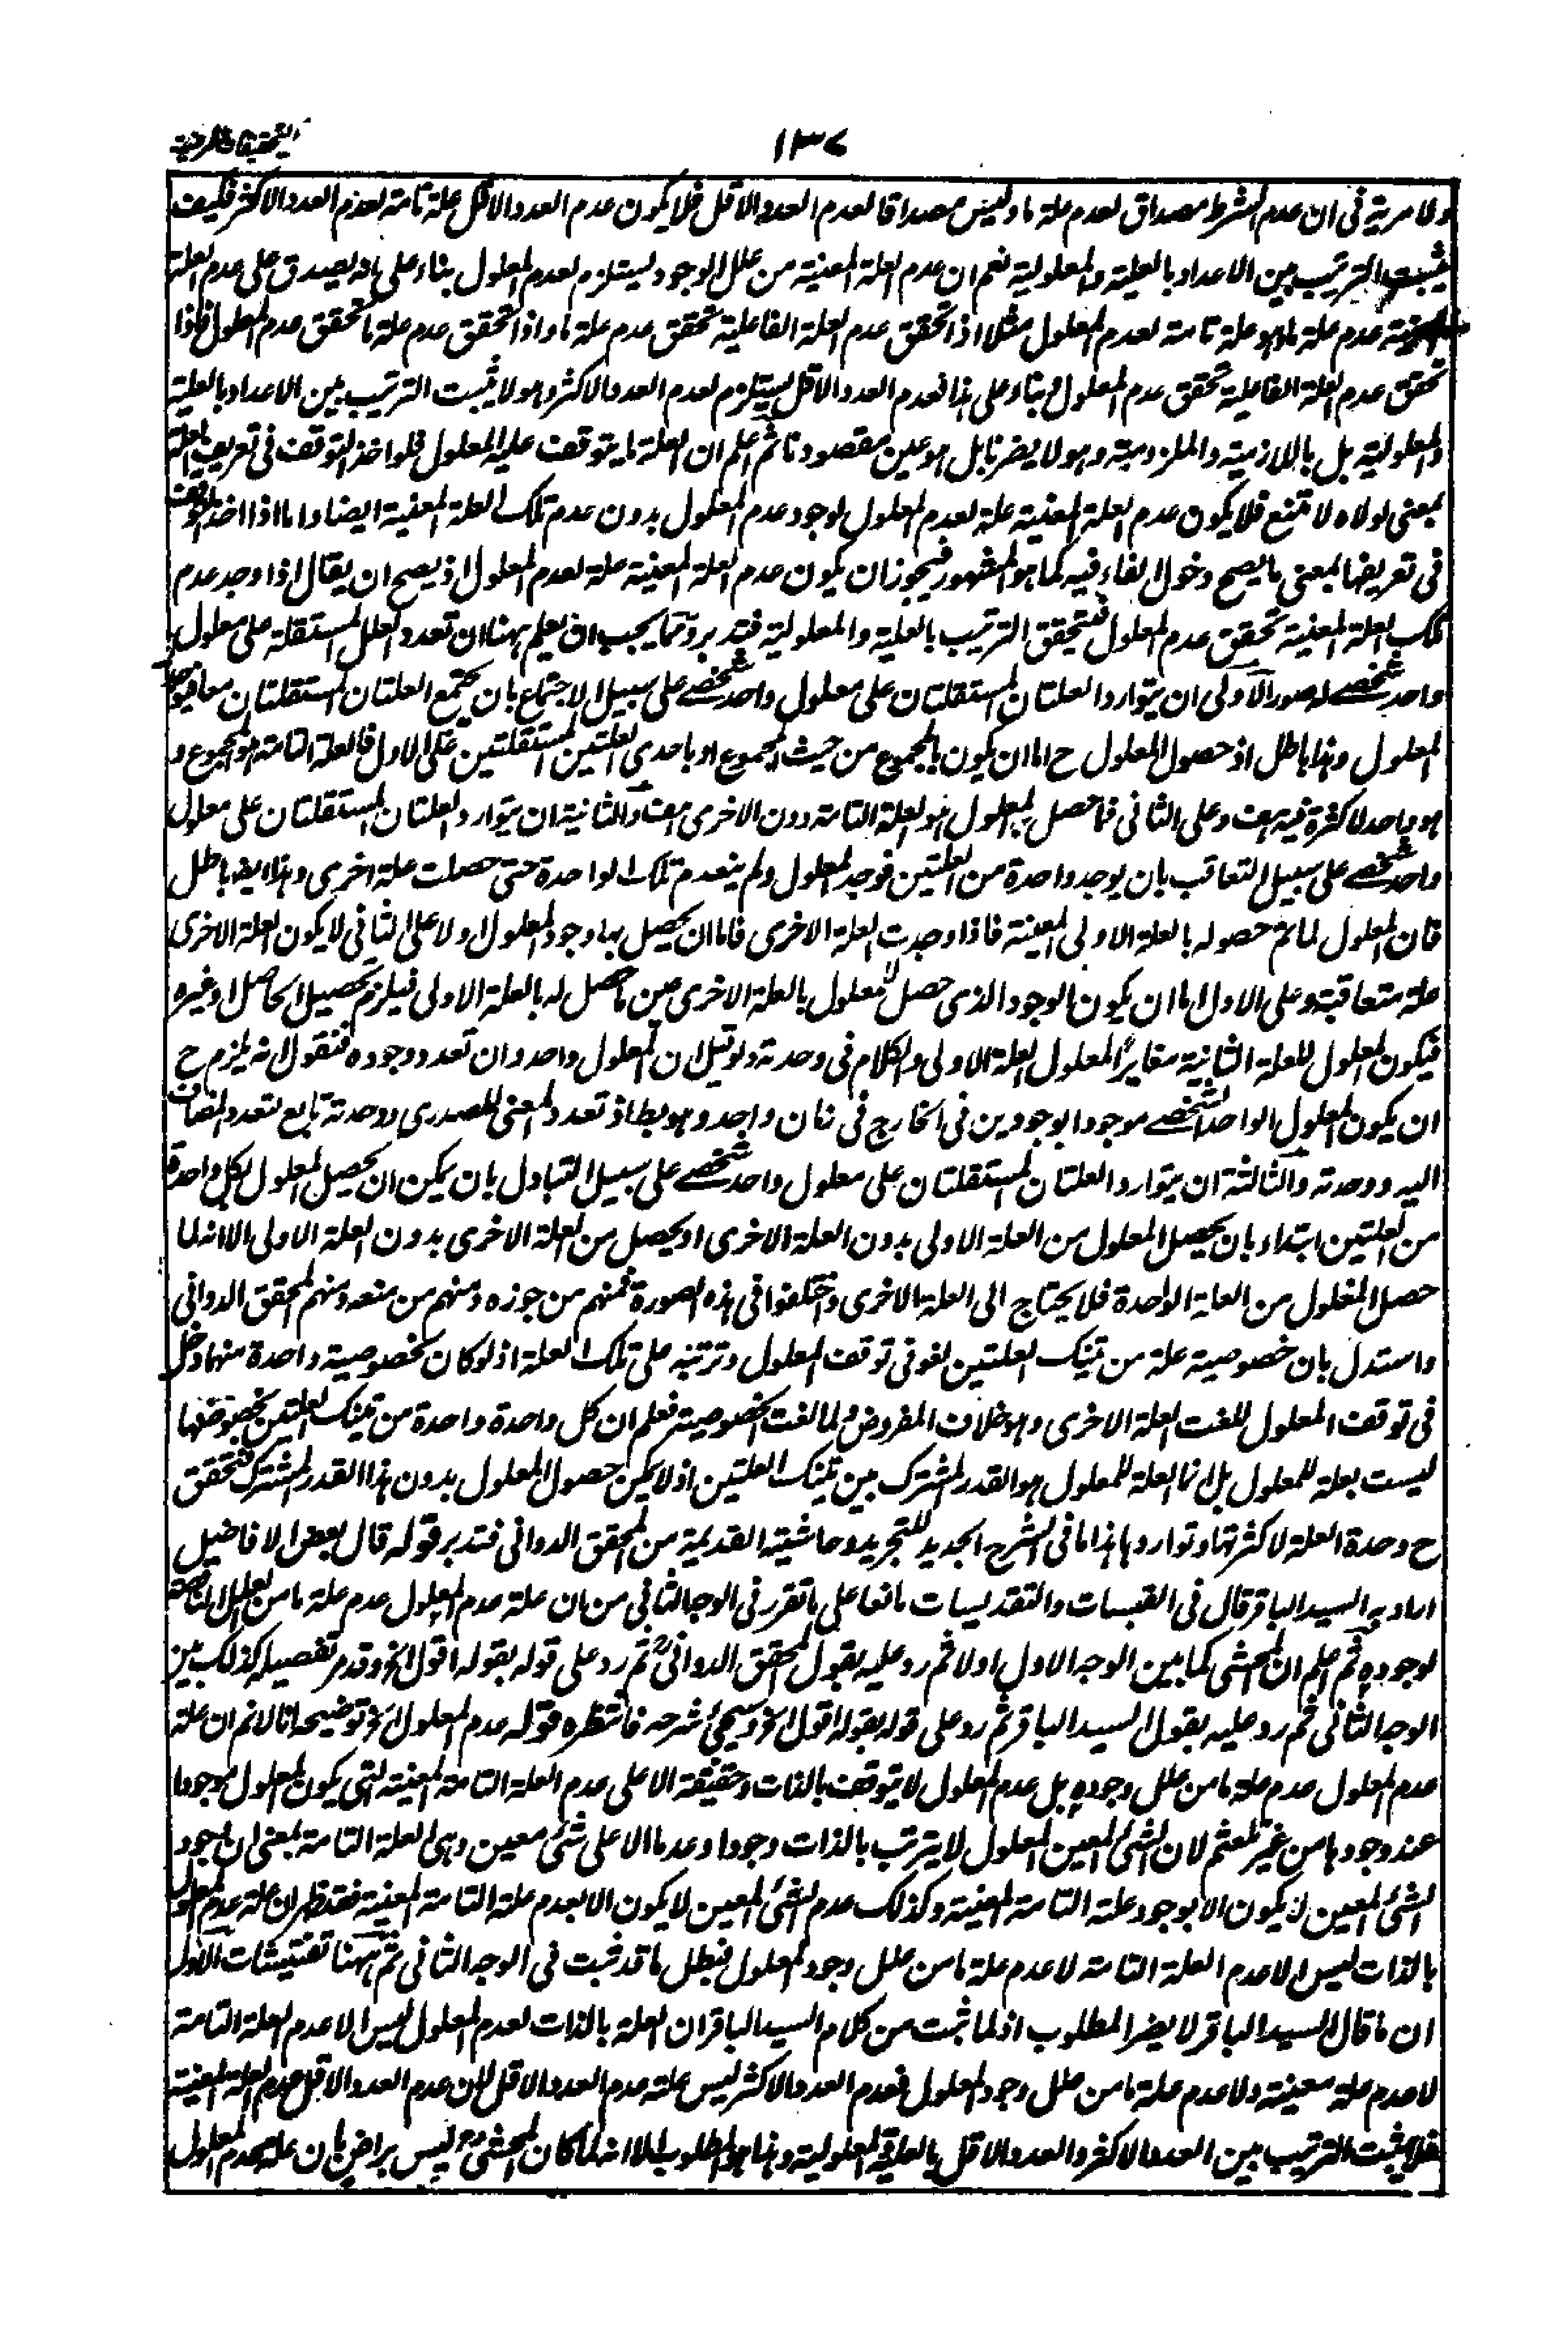 ١٣٧
التحقيقات المرضية
ولا مرية فى ان عدم الشرط مصداق لعدم علة ما وليس مصداقا لعدم العدد الاقل فلا يكون عدم العدد الاقل علة تامة لعدم العدد الاكثر فكيف
يثبت الترتيب بين الاعداد بالعلية والمعلولية نعم ان عدم العلة المعنية من علل الوجود ليستلزم لعدم المعلول بناء على انه يصدق على عدم العلة
المعنية عدم علة ما وهو علة تامة لعدم المعلول مثلا اذا تحقق عدم العلة الفاعلية تحقق عدم علة ما واذا تحقق عدم علة ما تحقق عدم المعلول فاذا
تحقق عدم العلة الفاعلية تحقق عدم المعلول وبناء على هذا فعدم العدد الاقل يستلزم لعدم العدد الاكثر وهو لا يثبت الترتيب بين الاعداد بالعلية
والمعلولية بل باللازمية والملزومية وهو لا يضرنا بل هو عين مقصودنا ثم اعلم ان العلة ما يتوقف عليه المعلول فلو اخذ التوقف فى تعريف العلة
بمعنى لولاه لامتنع فلا يكون عدم العلة المعنية علة لعدم المعلول لوجود عدم المعلول بدون عدم تلك العلة المعنية ايضا واما اذا اخذ التوقف
فى تعريفها بمعنى ما يصح دخول الفاء فيه كما هو المشهور فيجوز ان يكون عدم العلة المعينة علة لعدم المعلول اذ يصح ان يقال اذا وجد عدم
تلك العلة المعنية تحقق عدم المعلول فيتحقق الترتيب بالعلية والمعلولية فتدبر ومما يجب ان يعلم ههنا ان تعدد العلل المستقلة على معلول
واحد شخصى له صور الاولى ان يتوارد العلتان المستقلتان على معلول واحد شخصى على سبيل الاجتماع بان يجتمع العلتان المستقلتان معا فيوجد
المعلول وهذا باطل اذ حصول المعلول ح اما ان يكون بالمجموع من حيث المجموع او باحدى العلتين المستقلتين على الاول فالعلة التامة هو المجموع و
هو واحد لا كثرة فيه هف وعلى الثانى فما حصل به المعلول هو العلة التامة دون الاخرى هف والثانية ان يتوارد العلتان المستقلتان على معلول
واحد شخصى على سبيل التعاقب بان يوجد واحدة من العلتين فوجد المعلول ولم ينعدم تلك الواحدة حتى حصلت علة اخرى وهذا ايضا باطل
فان المعلول لما تم حصوله بالعلة الاولى المعينة فاذا وجدت العلة الاخرى فاما ان يحصل بها وجود المعلول او لا على الثانى لا يكون العلة الاخرى
علة متعاقبة وعلى الاول اما ان يكون الوجود الذى حصل للمعلول بالعلة الاخرى عين ما حصل له بالعلة الاولى فيلزم تحصيل الحاصل او غيره
فيكون المعلول للعلة الثانية مغايرًا لمعلول العلة الاولى والكلام فى وحدته ولو قيل ان المعلول واحد وان تعدد وجوده فنقول انه يلزم ح
ان يكون المعلول الواحد الشخصى موجودا بوجودين فى الخارج فى زمان واحد وهو بط اذ تعدد المعنى المصدرى ووحدته تابع لتعدد المضاف
اليه ووحدته والثالثة ان يتوارد العلتان المستقلتان على معلول واحد شخصى على سبيل التبادل بان يمكن ان يحصل المعلول بكل واحدة
من العلتين ابتداء بان يحصل المعلول من العلة الاولى بدون العلة الاخرى او يحصل من العلة الاخرى بدون العلة الاولى الا انه لما
حصل المعلول من العلة الواحدة فلا يحتاج الى العلة الاخرى واختلفوا فى هذه الصورة فمنهم من جوزه ومنهم من منعه ومنهم المحقق الدوانى
واستدل بان خصوصية علة من تينك العلتين لغو فى توقف المعلول وترتبه على تلك العلة اذ لو كان لخصوصية واحدة منهما دخل
فى توقف المعلول للغت العلة الاخرى وهو خلاف المفروض ولما لغت الخصوصية فعلم ان كل واحدة واحدة من تينك العلتين بخصوصها
ليست بعلة للمعلول بل انما العلة للمعلول هو القدر المشترك بين تينك العلتين اذ لا يمكن حصول المعلول بدون هذا القدر المشترك فتحقق
ح وحدة العلة لا كثرتها وتواردها هذا ما فى الشرح الجديد للتجريد وحاشيته القديمة من المحقق الدوانى فتدبر قوله قال بعض الافاضيل
اراد به السيد الباقر قال فى القبسات والتقديسات مانعا على ما تقرر فى الوجه الثانى من ان علة عدم المعلول عدم علة ما من العلل الناقصة
لوجوده ثم اعلم ان المحشى كما بين الوجه الاول اولا ثم رد عليه بقول المحقق الدوانى ثم رد على قوله بقوله اقول الخ وقد مر تفصيله كذلك بين
الوجه الثانى ثم رد عليه بقول السيد الباقر ثم رد على قوله بقوله اقول الخ وسيجئ شرحه فانتظره قوله عدم المعلول الخ توضيحه انا لا نم ان علة
عدم المعلول عدم علة ما من علل وجوده بل عدم المعلول لا يتوقف بالذات وحقيقة الا على عدم العلة التامة المعنية التى يكون المعلول موجودا
عند وجودها من غير تلعثم لان الشئ المعين المعلول لا يترتب بالذات وجودا وعدما الا على شئ معين وهى العلة التامة بمعنى ان وجود
الشئ المعين لا يكون الا بوجود علة التامة المعنية وكذلك عدم الشئ المعين لا يكون الا بعدم علة التامة المعنية فقد ظهر ان علة عدم المعلول
بالذات ليس الا عدم العلة التامة لا عدم علة ما من علل وجود المعلول فبطل ما قد ثبت فى الوجه الثانى ثم ههنا تفتيشات الاول
ان ما قال السيد الباقر لا يضر المطلوب اذ لما ثبت من كلام السيد الباقر ان العلة بالذات لعدم المعلول ليس الا عدم العلة التامة
لا عدم علة معينة ولا عدم علة ما من علل وجود المعلول فعدم العدد الاكثر ليس علته عدم العدد الاقل لان عدم العدد الاقل عدم العلة المعنية
فلا يثبت الترتيب بين العدد الاكثر والعدد الاقل بالعلية والمعلولية وهذا هو المطلوب الا انه لما كان المحشى ليس براض بان علة عدم المعلول